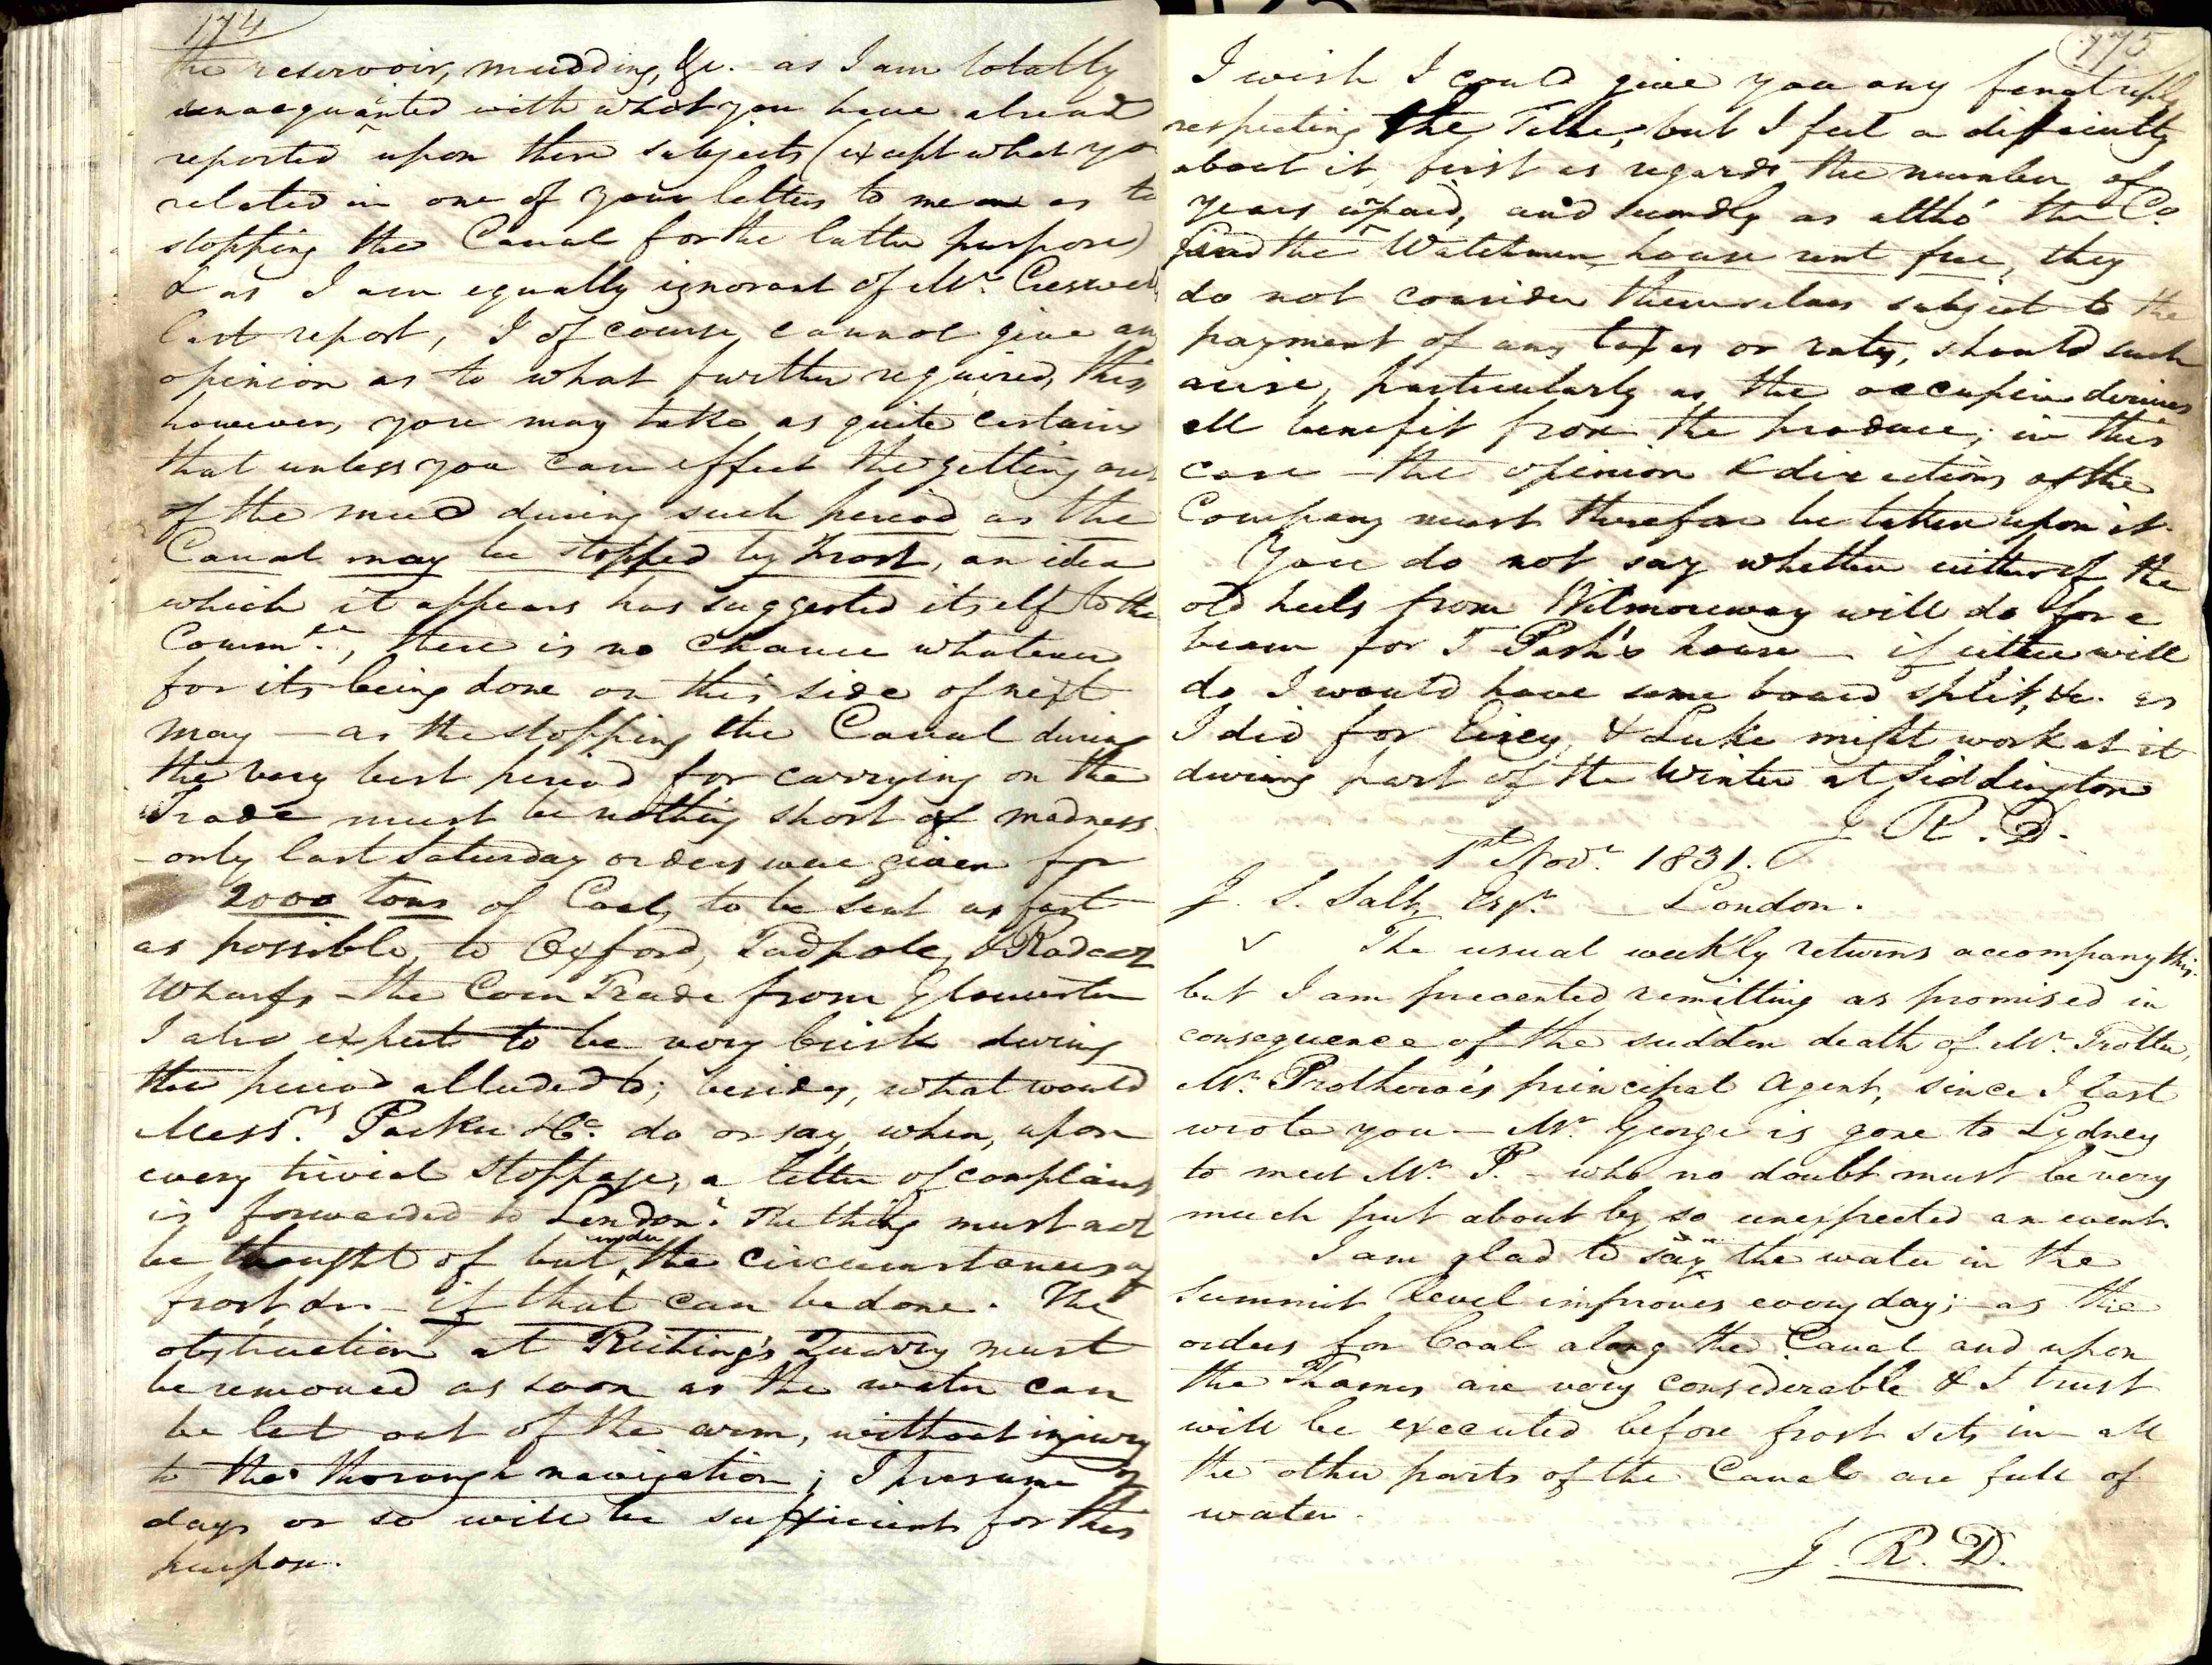 174
the reservoir, mudding, &c. - as I am totally
unacquainted with what you have alread
reported upon these subjects (except what yo
related in one of your letters to me as to
stopping the Canal for the latter purpose)
& as I am equally ignorant of Mr. Creswell's
last report, I of course cannot give an
opinion as to what further required, this
however, you may take as quite certain
that unless you can effect the getting out
of the mud during such period as the
Canal may be stopped by Frost, an idea
which it appears has suggested itself to the
Commee., there is no chance whatever
for its being done on this side of next
May — as the stopping the Canal during
the very best period for carrying on the
Trade must be nothing short of madness
- only last Saturday orders were given for
2000 tons of Coal, to be sent as fast
as possible, to Oxford, Tadpole, & Radcot
Wharfs - the Corn Trade from Gloucester
I also expect to be very brisk during
the period alluded to; besides, what would
Messrs. Parker & Co. do or say, when, upon
every trivial stoppage, a letter of complaint
is forwarded to London. The thing must not
be thought of but under the circumstances of
frost, &c. - if that can be done. The
obstruction at Quarry must
be removed as soon as the water can
be let out of the arm, without injury
to the thorough navigation; I presume
days or so will be sufficient for this
purpose.
175
I wish I could give you any final reply
respecting the Tithe, but I feel a difficulty
about it, first as regards the number of
years unpaid, and secondly as altho' the Co.
find the Watchmen house rent free, they
do not consider themselves subject to the
payment of any taxes or rates, should such
arise, particularly as the occupier derives
all benefit from the produce; in this
case - the opinion & directions of the
Company must therefore be taken upon it.
You do not say whether either of the
old heels from Wilmoreway will do for a
beam for T Pash's house — if either will
do I would have some board split, &c. as
I did for & Luke might work at it
during part of the Winter at Siddington
J. R. D.
1st Novr. 1831.
J. S. Salt, Esqr. — London.
✓ The usual weekly returns accompany this -
but I am prevented remitting as promised in
consequence of the sudden death of Mr. Trotter,
Mr. Protheroe's principal Agent, since I last
wrote you — Mr. George is gone to Lydney
to meet Mr. P. - who no doubt must be very
much put about by so unexpected an event.
I am glad to say the water in the
Summit level improves every day; - as the
orders for Coal along the Canal and upon
the Thames are very considerable & I trust
will be executed before frost sets in - all
the other parts of the Canal are full of
water.
J. R. D.